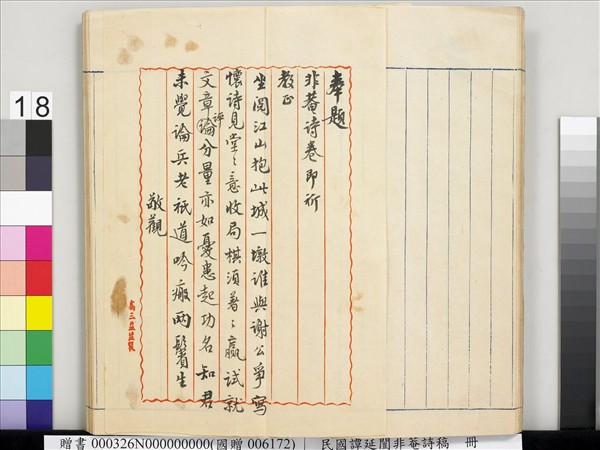 奉題
非菴詩卷即祈
教正
坐閱江山抱此城一墩誰與謝公爭寫
懷詩見堂〻意收局棋須著〻贏試就
文章論分量亦如憂患起功名知君
評
未覺論兵老祇道吟 兩鬢生
敬觀
高三益監製
18
贈書 000326N000000000(國贈 006172) | 民國譚延闓非菴詩稿 冊